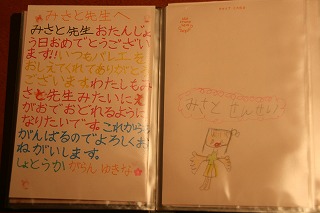 みさと先生へ
みさと先生おたんじょ
う日おめでとうござい
ます!!いつもバレエを
おしえてくれてありがと
うございます。わたしもみ
さと先生みたいにえ
がおでおどれるように
なりたいです。これからも
がんばるのでよろしくお
ねがいします。
しょとうか がらん ゆきな
みさと せんせい